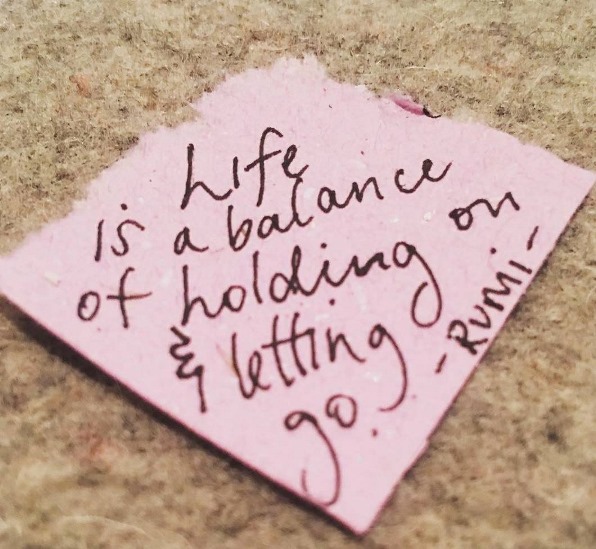 Life
is a balance
of holding on
& letting
go.
-Rumi-